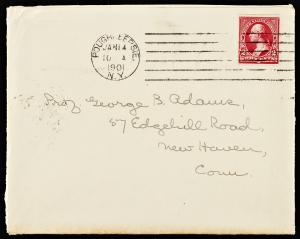 POUGHKEEPSIE,
JAN 14
10 A
1901
N.Y.
Prof George B. Adams,
57 Edgehill Road,
New Haven,
Conn.